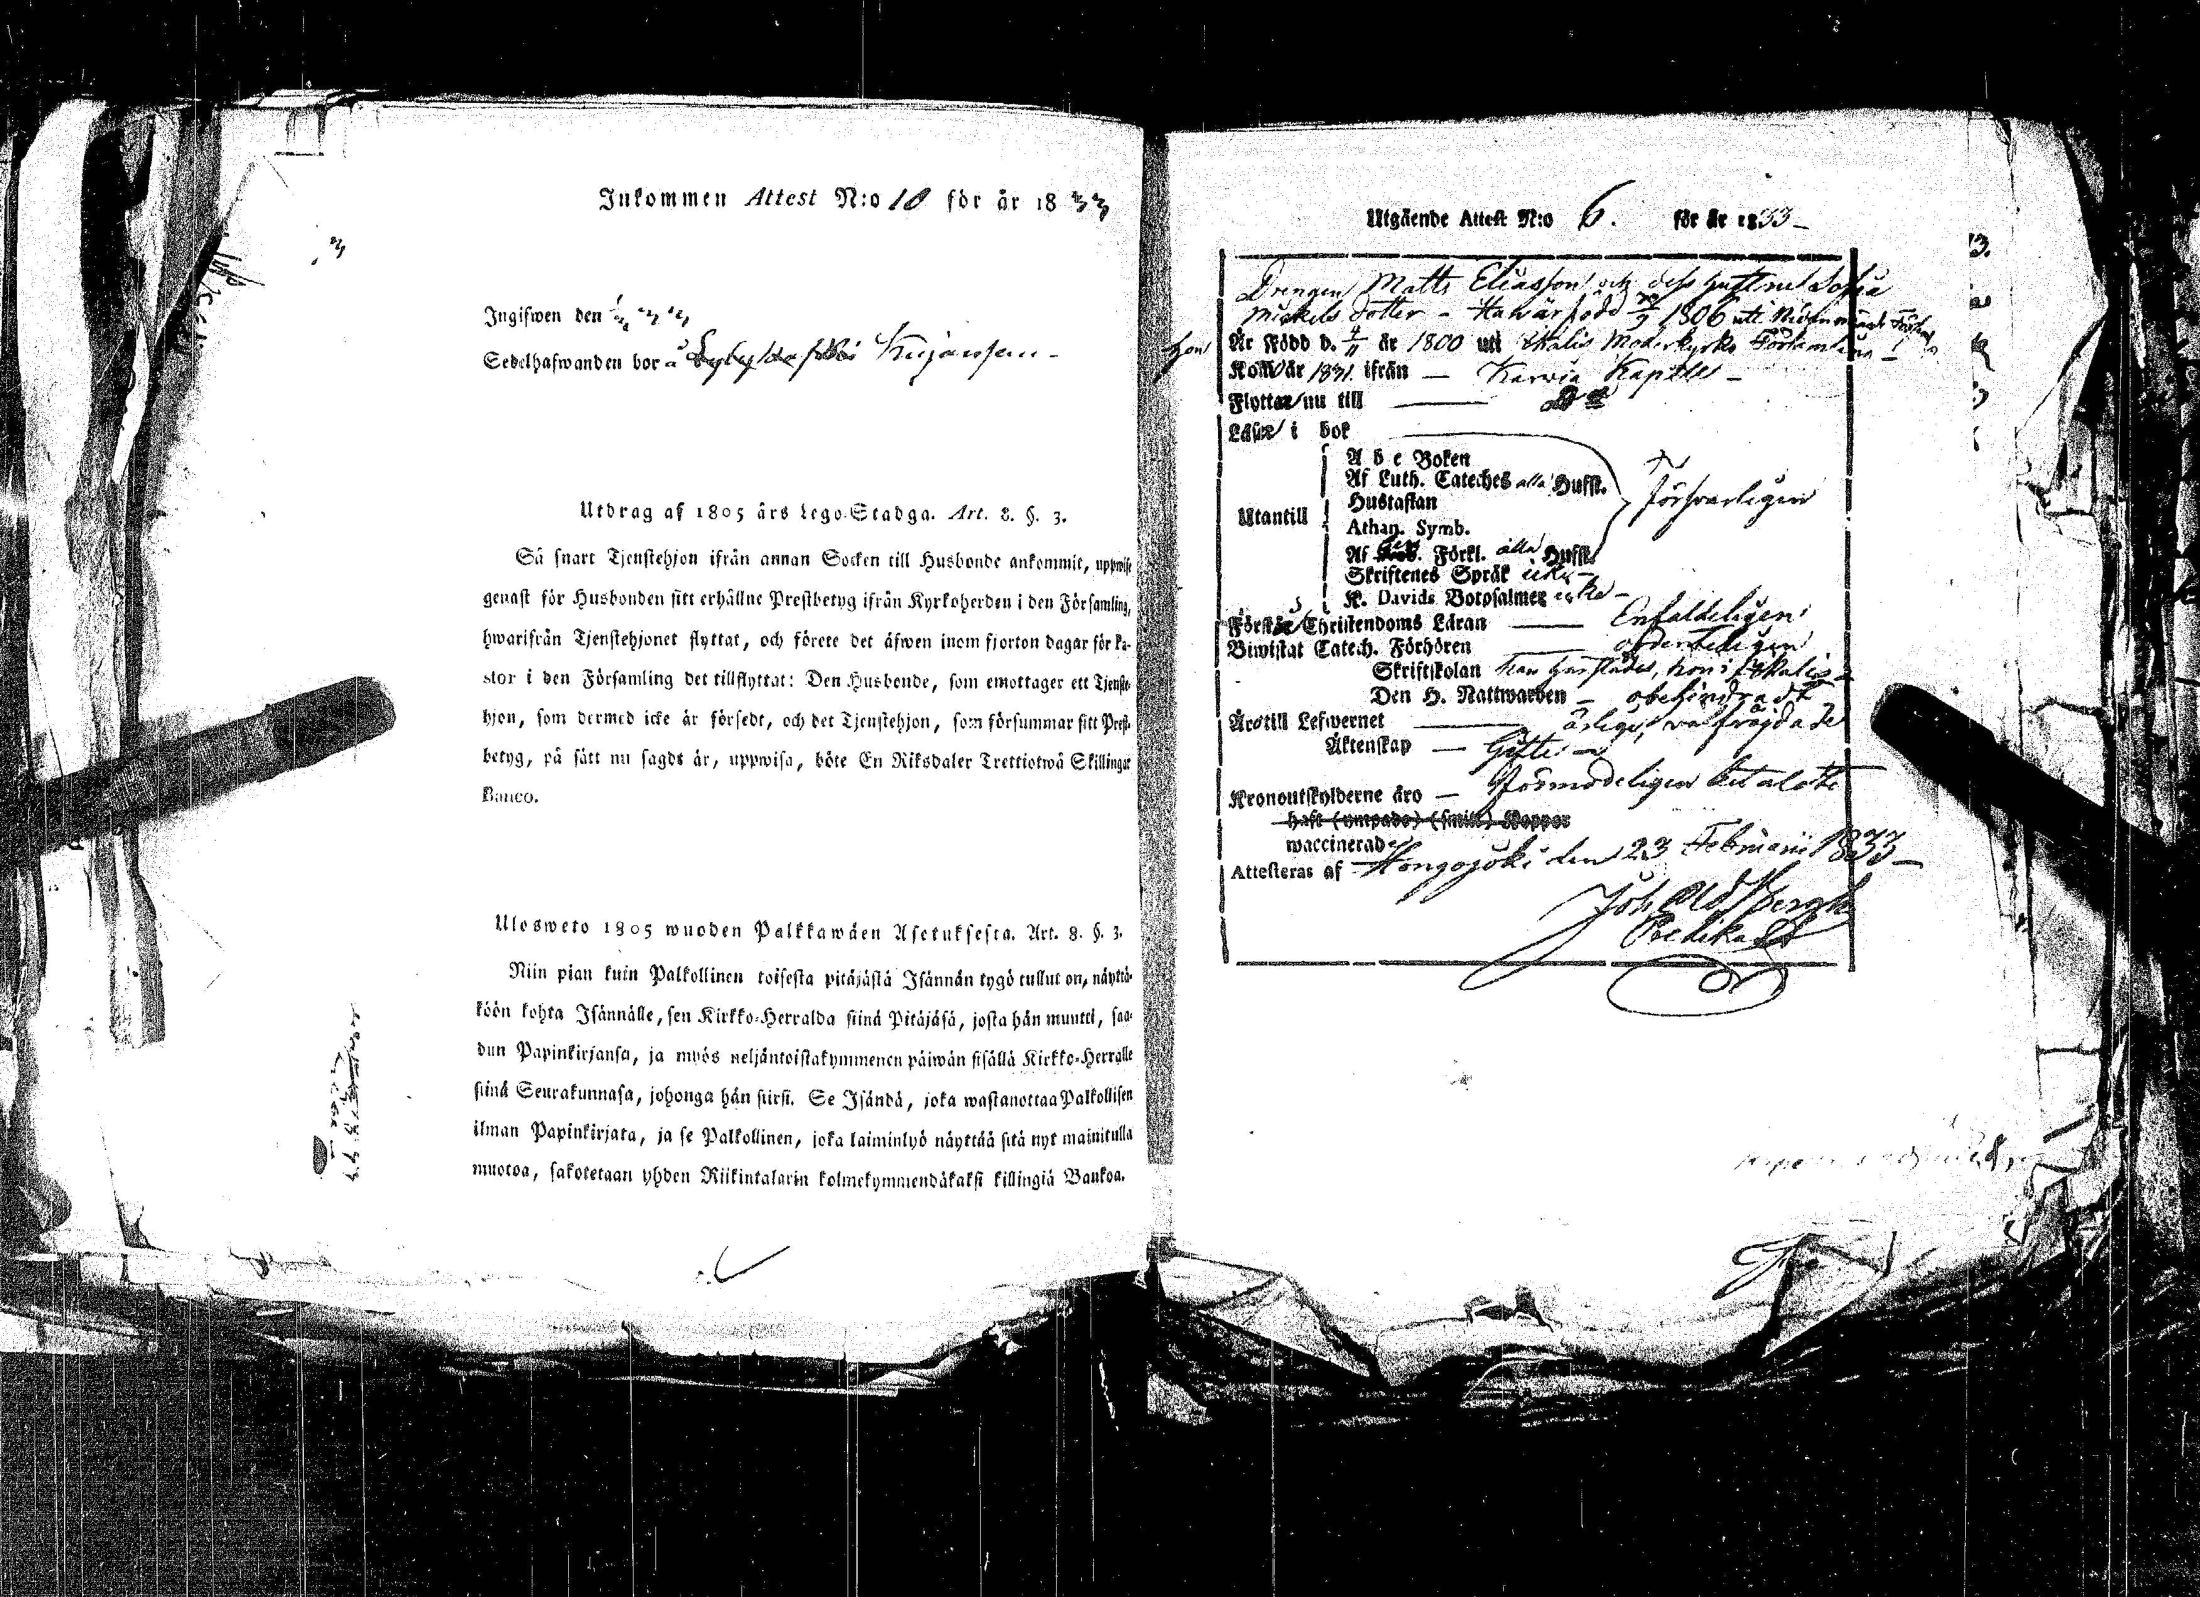 Inkommen Attest N:o 10 för år 1833
Ingifwen den
Sedelhafwanden bor å Kujanpen
Utdrag af 1805 års Lego-Stadga. Art. 8. §. 3.
Så snart Tjenstehjon ifrån annan Socken till Husbonde ankommit, uppwise
genast för Husbonden sitt erhållne Prestbetyg ifrån Kyrkoherden i den Församling,
hwarifrån Tjenstehjonet flyttat, och förete det äfwen inom fjorton dagar för Pa-
stor i den Församling det tillflyttat: Den Husbonde, som emottager ett Tjenste-
hjon, som dermed icke är försedt, och det Tjenstehjon, som försummar sitt Prest-
betyg, på sätt nu sagdt är, uppwisa, böte En Riksdaler Trettiotwå Skillingar
Banco.
Ulosweto 1805 wuoden Palkkawäen Asetuksesta. Art. 8. §. 3.
Niin pian kuin Palkollinen toisesta pitäjästä Isännän tygö tullut on, näyttä-
köön kohta Isännälle, sen Kirkko-Herralda siinä Pitäjäsä, josta hän muutti, saa-
dun Papinkirjansa, ja myös neljäntoistakymmenen päiwän sisällä Kirkko-Herralle
siinä Seurakunnasa, johonga hän siirsi. Se Isändä, joka wastanottaa Palkollisen
ilman Papinkirjata, ja se Palkollinen, joka laiminlyö näyttää sitä nyt mainitulla
muotoa, sakotetaan yhden Riikintalarin kolmekymmendäkaksi killingiä Bankoa.
Utgående Attest N:o 6. för år 1833
Drengen Matts Eliasson och dess hustru Sofia
Mickels dotter - Han är född 1806 uti
hon Är Född d. 4/11 år 1800 uti Ikalis Moderkyrko Församling
Kom år 1831 ifrån — Karvia Kapell -
Flytta nu till —
Läsa i bok
A b c Boken
Af Luth. Cateches alla Hufst.
Hustaflan
Utantill
Athan. Symb.
Försvarligen
Af Förkl. alla Hufst.
Skriftenes Språk icke -
K. Davids Botpsalmer icke -
Förstå Christendoms Läran — Enfaldeligen
Biwistat Catech. Förhören — ordenteligen
Skriftskolan
Den H. Nattwarden - obehindradt
Äro till Lefwernet — ärlige, wälfrägdade
Äktenskap — Gifte
Kronoutskylderne äro — Förmodeligen betalate
haft (ympade) (smitt.) Koppor
waccinerade
Attesteras af Hongojoki den 23 Februarii 1833
Joh
Predikant